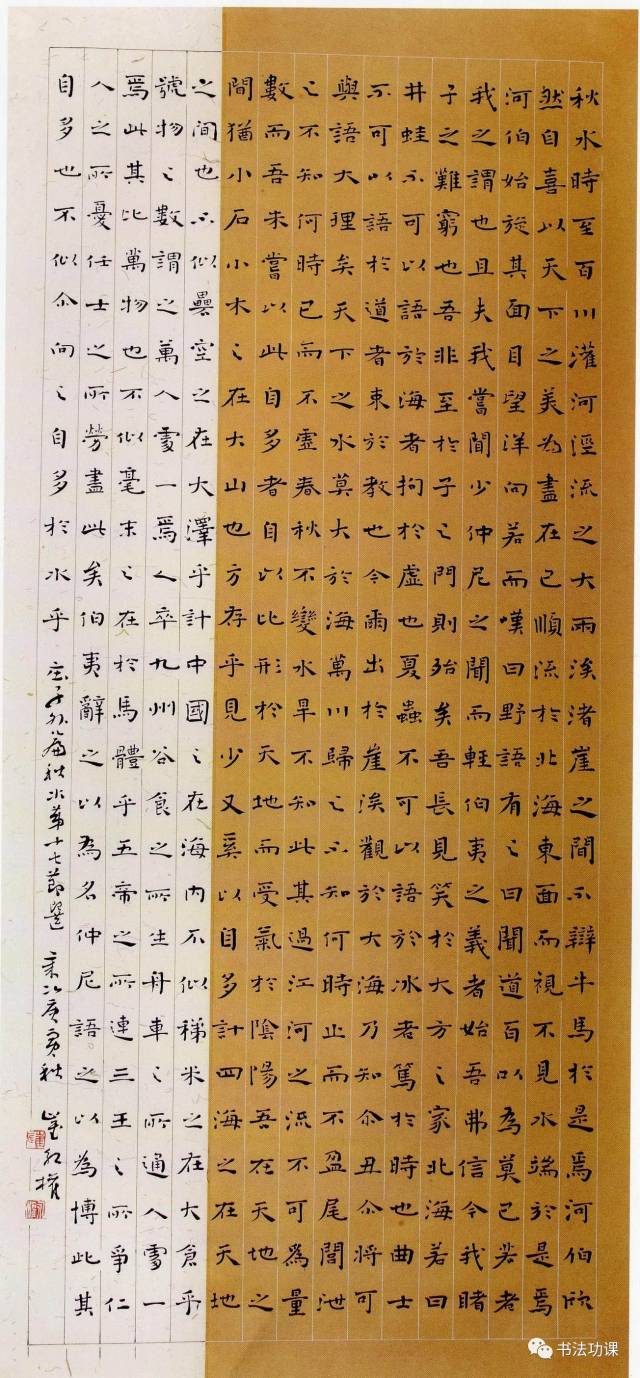 秋水時至百川灌河涇流之大兩涘渚崖之間不辯牛馬於是焉河伯欣
然自喜以天下之美為盡在己順流於北海東面而視不見水端於是焉
河伯始旋其面目望洋向若而嘆曰野語有之曰聞道百以為莫己若者
我之謂也且夫我嘗聞少仲尼之聞而輕伯夷之義者始吾弗信今我睹
子之難窮也吾非至於子之門則殆矣吾長見笑於大方之家北海若曰
井蛙不可以語於海者拘於虛也夏蟲不可以語於冰者篤於時也曲士
不可以語於道者束於教也今爾出於崖涘觀於大海乃知尒丑尒將可
與語大理矣天下之水莫大於海萬川歸之不知何時止而不盈尾閭泄
之不知何時已而不虛春秋不變水旱不知此其過江河之流不可為量
數而吾未嘗以此自多者自以比形於天地而受氣於陰陽吾在天地之
間猶小石小木之在大山也方存乎見少又奚以自多計四海之在天地
之間也不似礨空之在大澤乎計中國之在海內不似稊米之在大倉乎
號物之數謂之萬人處一焉人卒九州谷食之所生舟車之所通人處一
焉此其比萬物也不似毫末之在於馬體乎五帝之所連三王之所爭仁
人之所憂任士之所勞盡此矣伯夷辭之以為名仲尼語之以為博此其
自多也不似尒向之自多於水乎 庄子外篇秋水第十七節選 庚寅秋
书法功课